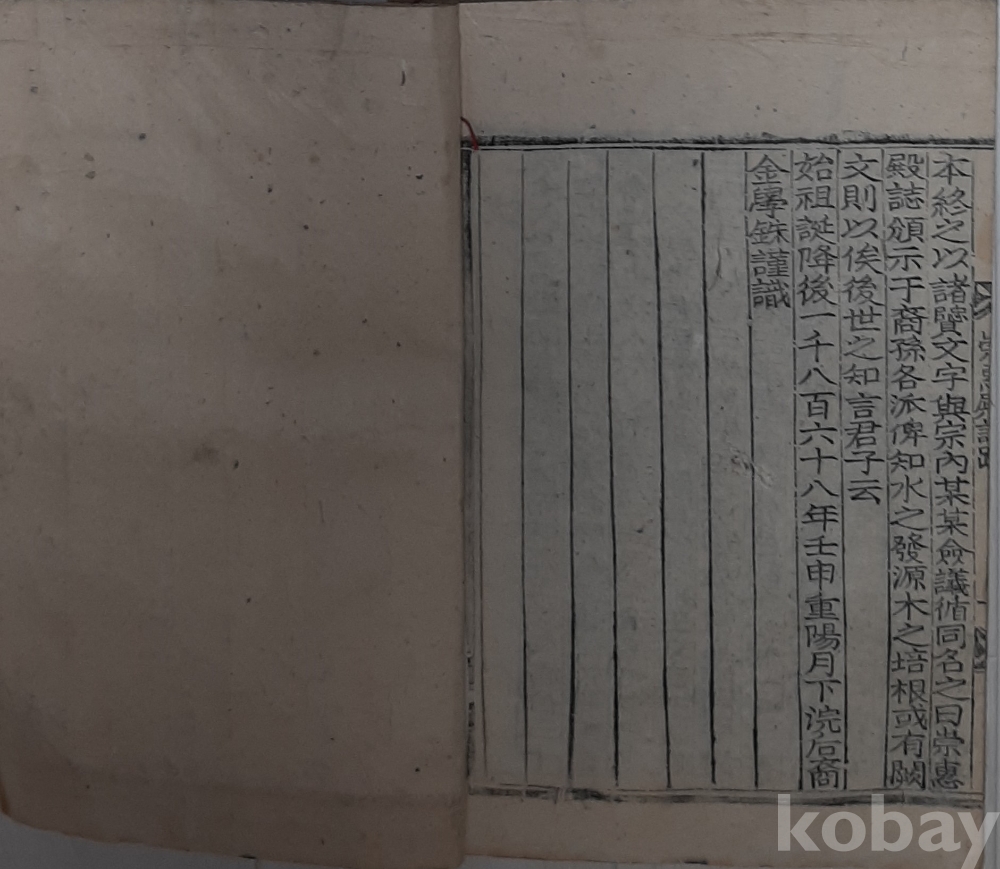 本終之以諸賢文字與宗內某某僉議循同名之曰崇惠
殿誌頒示于裔孫各派俾知水之發源木之培根或有闕
文則以俟後世之知言君子云
始祖誕降後一千八百六十八年壬申重陽月下浣后裔
金學銖謹識
崇惠殿誌跋
kobay